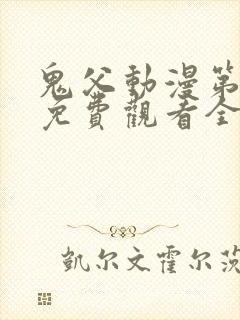 鬼父動漫第
免費觀看全
凱尔文霍尔茨